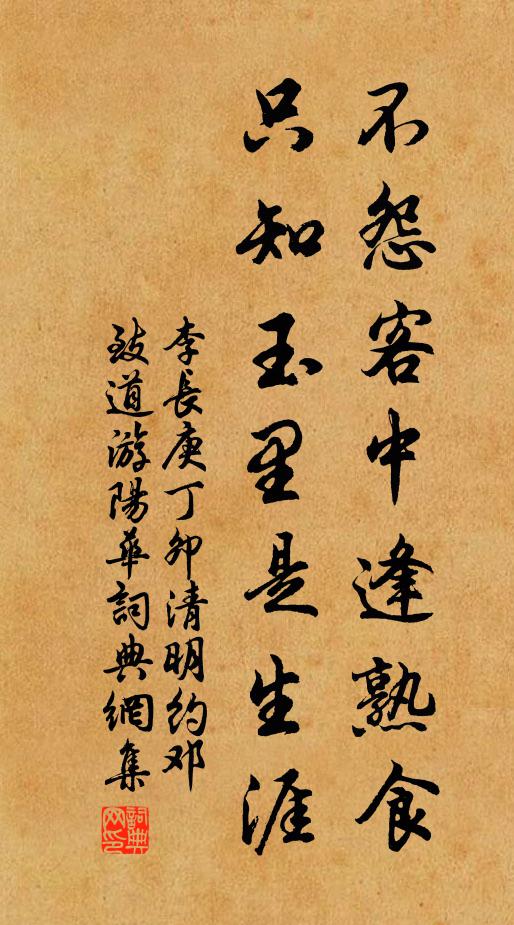 不怨客中逢熟食
只知玉里是生涯
李長庚丁卯清明约邓
致道游陽華詞典網集
詞典
网印